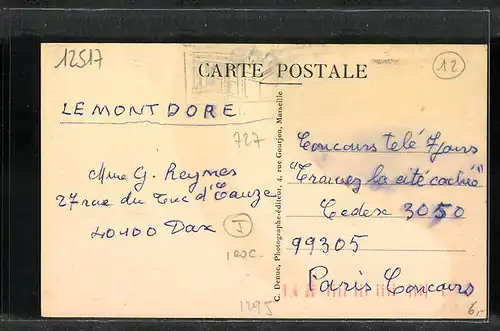 12517
CARTE POSTALE
12
LE MONT DORE
727
Mme G. Reynes
27 rue du Tuc d'Eauze
40100 Dax
I
100C.
1295
C. Denuc, Photographe-éditeur, 4, rue Gourjon, Marseille
Concours télé 7 jours
"Trouvez la cité cachée"
Cedex 3050
99305
Paris Concours
6,-